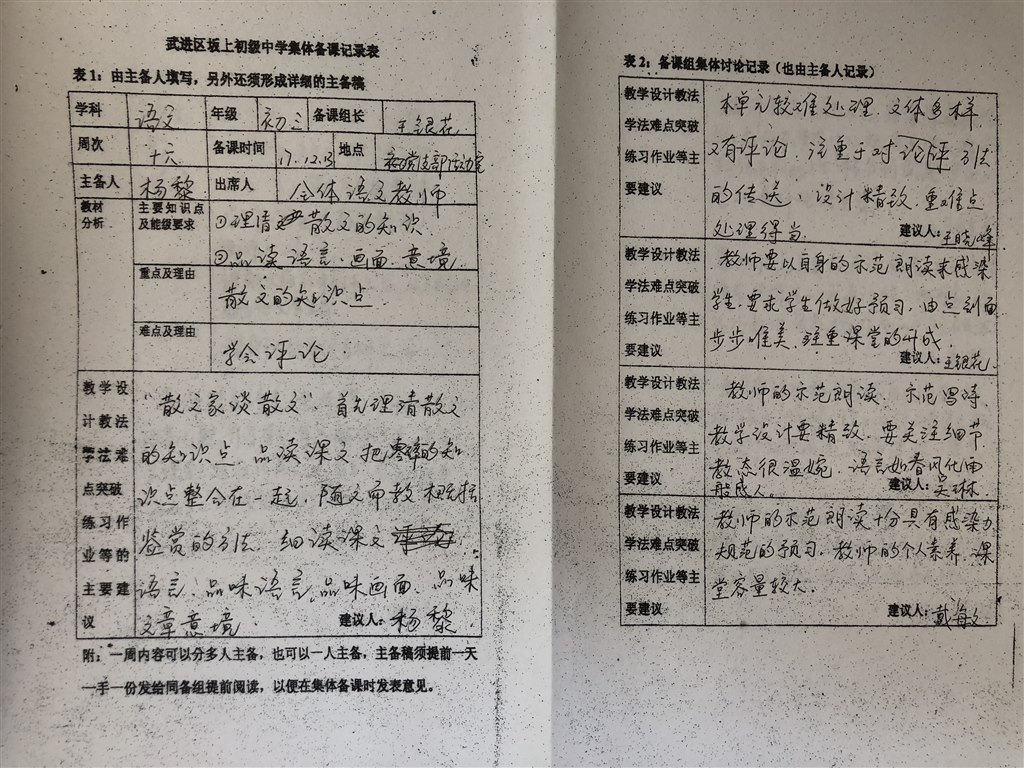 武进区坂上初级中学集体备课记录表
表1：由主备人填写，另外还须形成详细的主备稿
学科 语文 年级 初三 备课组长 王银花
周次 十六 备课时间 17.12.13 地点 初三党支部活动室
主备人 杨黎 出席人 全体语文教师
教材分析 主要知识点及能级要求
①理清散文的知识
②品读语言、画面、意境
重点及理由
散文的知识点
难点及理由
学会评论
教学设计教法学法难点突破练习作业等的主要建议
"散文家谈散文"，首先理清散文
的知识点，品读课文，把零碎的知
识点整合在一起，随文而教
鉴赏的方法，细读课文
语言，品味语言，品味画面，品味
文章意境
建议人：杨黎
附：一周内容可以分多人主备，也可以一人主备，主备稿须提前一天
一手一份发给同备组提前阅读，以便在集体备课时发表意见。
表2：备课组集体讨论记录（也由主备人记录）
教学设计教法学法难点突破练习作业等主要建议
本单元较难处理，文体多样，
又有评论，注重于对评论方法
的传送，设计精致，重难点
处理得当
建议人：王晓峰
教学设计教法学法难点突破练习作业等主要建议
教师要以自身的示范朗读来感染
学生，要求学生做好预习，由点到面
步步唯美，注重课堂的生成
建议人：王银花
教学设计教法学法难点突破练习作业等主要建议
教师的示范朗读，示范写诗，
教学设计要精致，要关注细节
教态很温婉，语言如春风化雨
般感人。
建议人：吴琳
教学设计教法学法难点突破练习作业等主要建议
教师的示范朗读十分具有感染力
规范的预习，教师的个人素养，课
堂容量较大。
建议人：戴海文